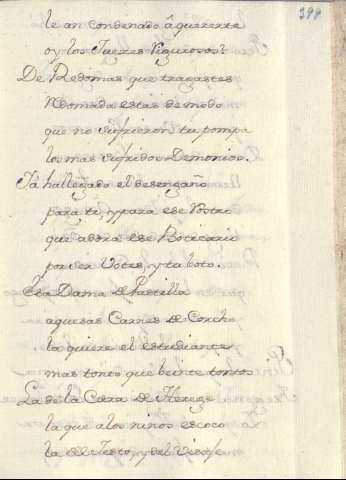 399
le an condenado â quererte
oy los Juezes Rigurosos?
De Redomas que tragastes
Redomada estas de modo
que no sufrieron tu pompa
los mas sufridos Demonios.
Ya ha llegado el desengaño
para ti, y para ese Rostro
que adora ese Boticario
por ser Votes, y tu boto.
Esa Dama de Pastilla
aquesas Carnes de Corcho
la quiere el estudiante
mas tonto que beinte tontos
La de la Cara de Herege
la que a los niños es coco
la del Tiesto, y del